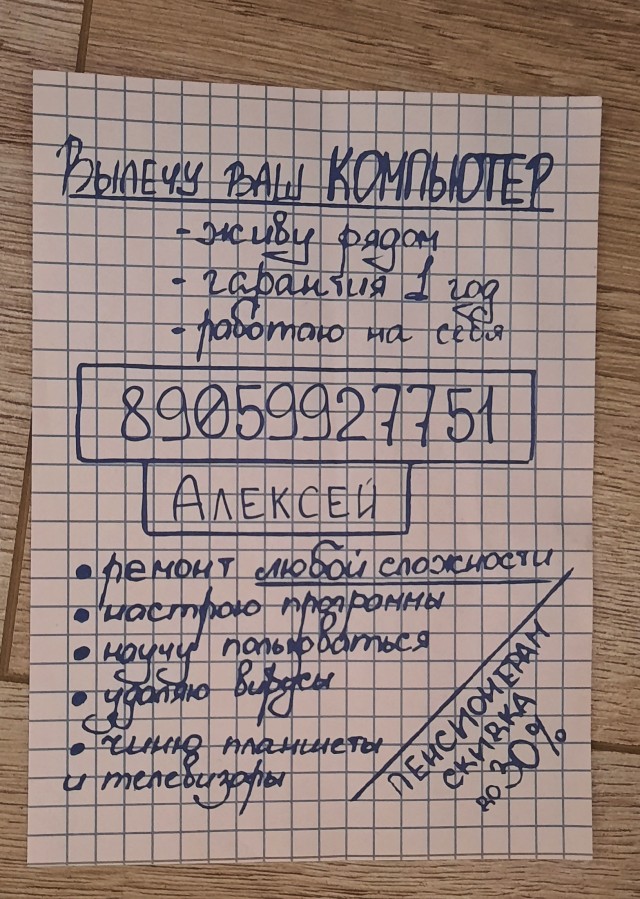 Вылечу ваш КОМПЬЮТЕР
- живу рядом
- гарантия 1 год
- работаю на себя
89059927751
АЛЕКСЕЙ
• ремонт любой сложности
• настрою програмны
• научу пользоваться
• удаляю вирусы
• чиню планшеты
и телевизоры
ПЕНСИОНЕРАМ
СКИДКА
до 30%